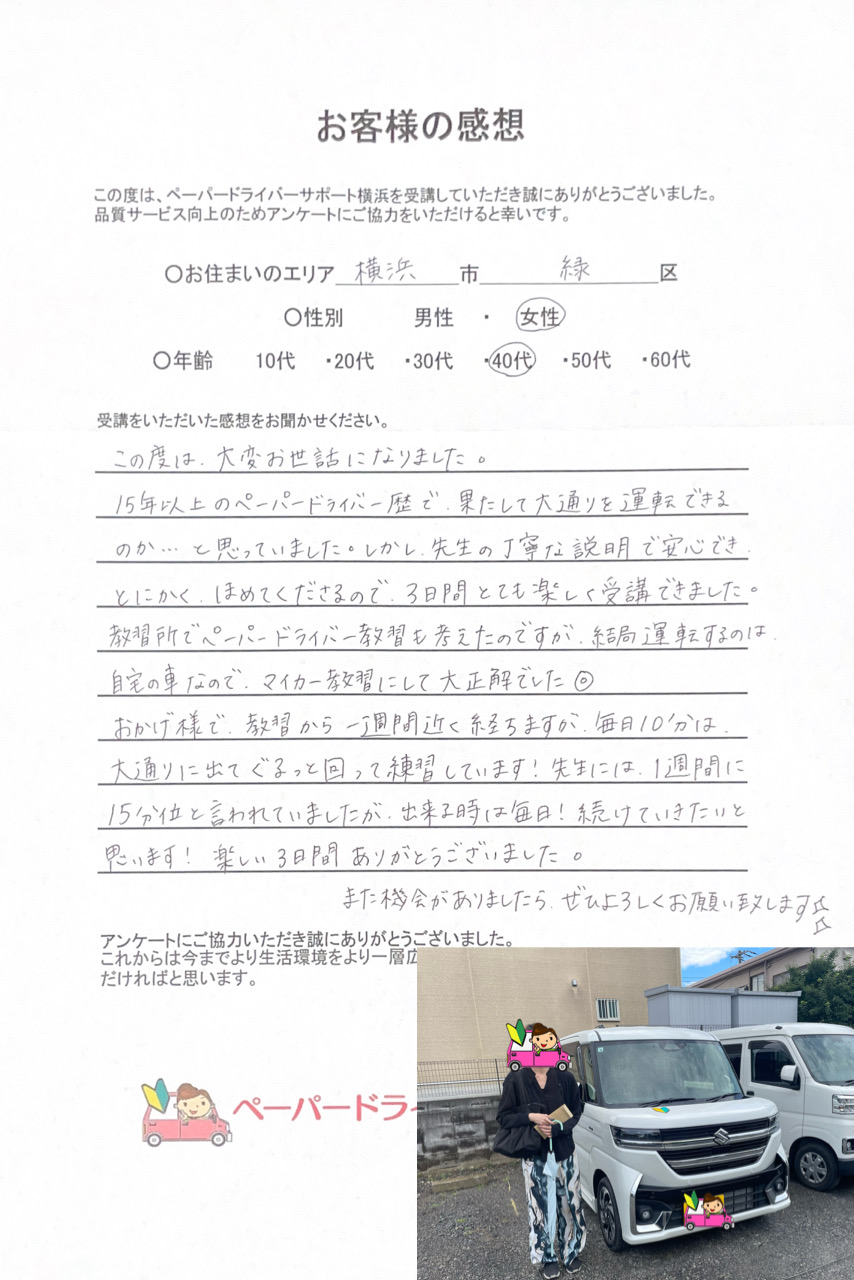 お客様の感想
この度は、ペーパードライバーサポート横浜を受講していただき誠にありがとうございました。
品質サービス向上のためアンケートにご協力をいただけると幸いです。
〇お住まいのエリア 横浜 市 緑 区
〇性別 男性 ・ 女性
〇年齢 10代 ・20代 ・30代 ・40代 ・50代 ・60代
受講をいただいた感想をお聞かせください。
この度は、大変お世話になりました。
15年以上のペーパードライバー歴で、果たして大通りを運転できる
のか…と思っていました。しかし、先生の丁寧な説明で安心でき、
とにかく、ほめてくださるので、3日間とても楽しく受講できました。
教習所でペーパードライバー教習も考えたのですが、結局運転するのは、
自宅の車なので、マイカー教習にして大正解でした◎
おかげ様で、教習から一週間近く経ちますが、毎日10分は、
大通りに出てぐるっと回って練習しています！先生には、1週間に
15分位と言われていましたが、出来る時は毎日！続けていきたいと
思います！楽しい3日間ありがとうございました。
また機会がありましたら、ぜひよろしくお願い致します☆☆
アンケートにご協力いただき誠にありがとうございました。
これからは今までより生活環境をより一層広
だければと思います。
ペーパードライ